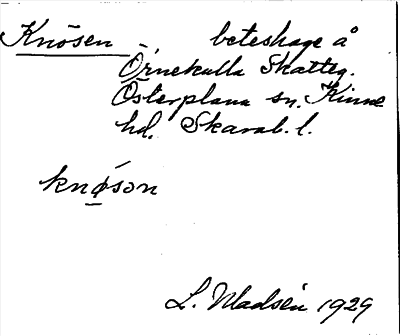 Knösen beteshage å
Örnekulla Skatteg.
Österplana sn. Kinne
hd. Skarab. l.
knǿsən
L. Madsén 1929